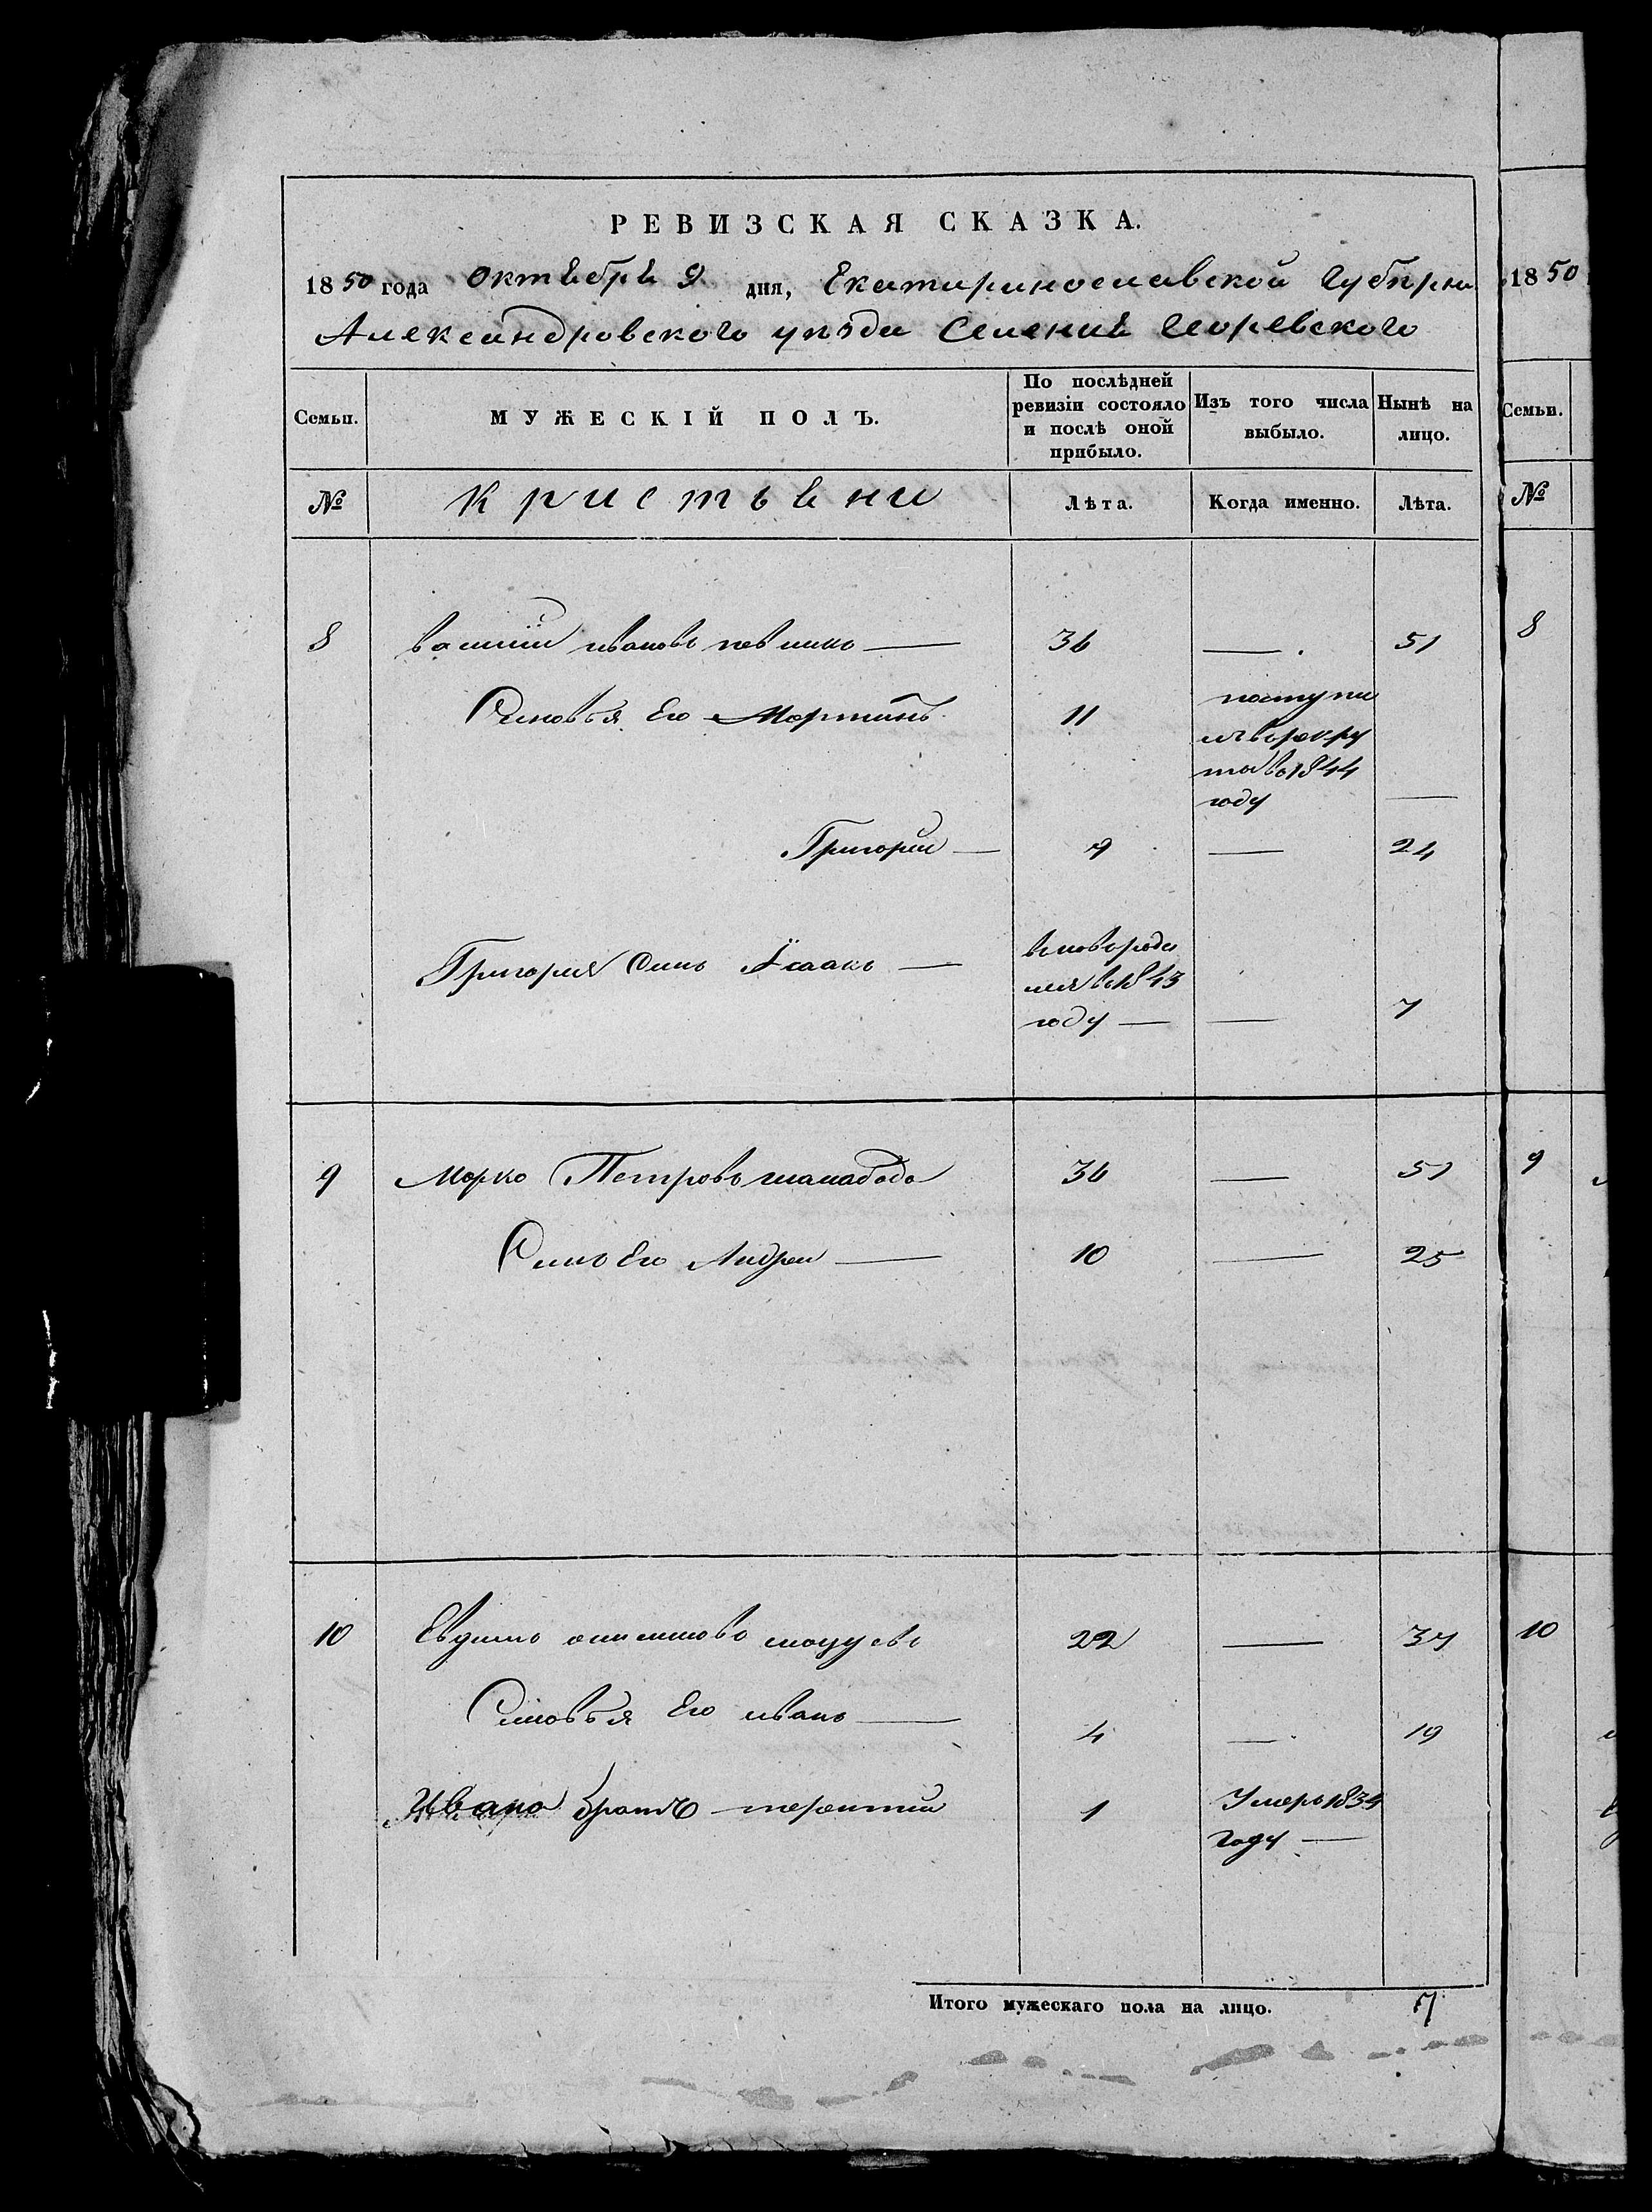 РЕВИЗСКАЯ СКАЗКА.
1850 года Октебре 9 дня, Екатеринославской Губерни
Александровского уезда Селение Игоревского
Семьи. МУЖЕСКІЙ ПОЛЪ. По послѣдней ревизіи состояло и послѣ оной прибыло. Изъ того числа выбыло. Нынѣ на лицо.
№ кристьени Лѣта. Когда именно. Лѣта.
8 василии ивановъ 36 — 51
Сыновья Его Мортинъ 11 поступи
лъ врекру
ты во 1844
году —
Григорий — 9 — 24
Григория Синъ Исаакъ — вновороди
лся в 1843
году — — 7
9 Морко Петровъ шапабода 36 — 51
Синъ Его Андреи — 10 — 25
10 Евдимъ 22 — 37
Сыновья Его иванъ — 4 — 19
Ивана братъ терентии 1 Умеръ 1834
году —
Итого мужескаго пола на лицо. 7
1850
Семьи.
№
8
9
10